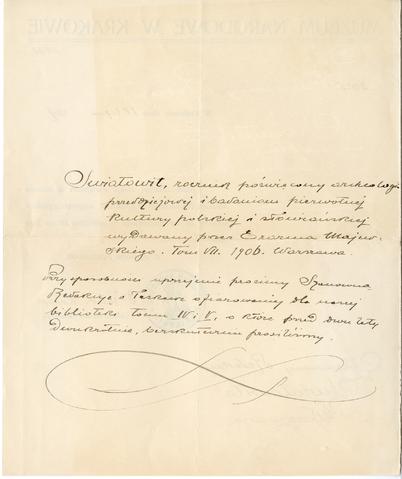 Światowit, rocznik poświęcony archeologii
przedziejowej i badaniom pierwotnej
kultury polskiej i słowiańskiej
wydawany przez Erazma Majew-
skiego. Tom VII. 1906. Warszawa.
Przy sposobności uprzejmie prosimy Szanowną
Redakcyę o łaskawe ofiarowanie dla naszej
biblioteki tomu IV i V, o które przed dwu laty
dwukrotnie, bezskutecznie prosiliśmy.
MUZEUM NARODOWE W KRAKOWIE